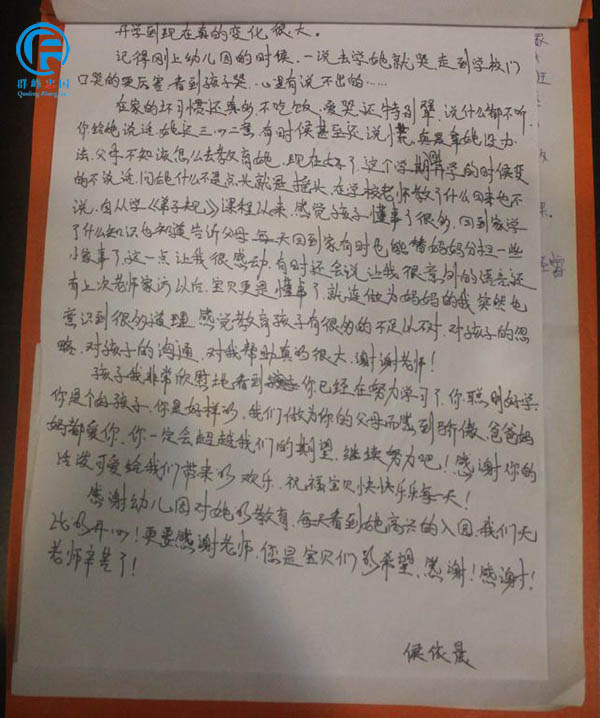 群峰中国
开学到现在真的变化很大。
记得刚上幼儿园的时候,一说去学她就哭,走到学校门
口哭的更厉害,看到孩子哭,心里有说不出的……
在家的坏习惯还真多,不吃饭,爱哭,还特别犟,说什么都不听,
你给她说话,她丢三四二零,有时候甚至还说慌,真是拿她没办
法,父母不知该怎么去教育她,现在好了,这个学期开学的时候变
的不说话,问她什么不是点头就是摇头,在学校老师教了什么回来也不
说,自从学《弟子规》课程以来,感觉孩子懂事了很多,回到家学
了什么知识也知道告诉父母,每天回到家有时也能替妈妈分担一些
小家事了,这一点让我很感动,有时还会说让我很意外的话,还
有上次老师家访以后,宝贝更是懂事了,就连做为妈妈的我突然也
意识到很多道理,感觉教育孩子有很多的不足以不对,对孩子的忽
略,对孩子的沟通,对我帮助真的很大,谢谢老师!
孩子我非常欣慰地看到你已经在努力学习了,你聪明好学,
你是个好孩子,你是好样的,我们做为你的父母而感到骄傲,爸爸妈
妈都爱你,你一定会超越我们的期望,继续努力吧!感谢你的
活泼可爱给我们带来的欢乐,祝福宝贝快快乐乐每一天!
感谢幼儿园对她的教育,每天看到她高兴的入园,我们无
比的开心!更要感谢老师,您是宝贝们的希望,感谢!感谢!
老师辛苦了!
侯依晨